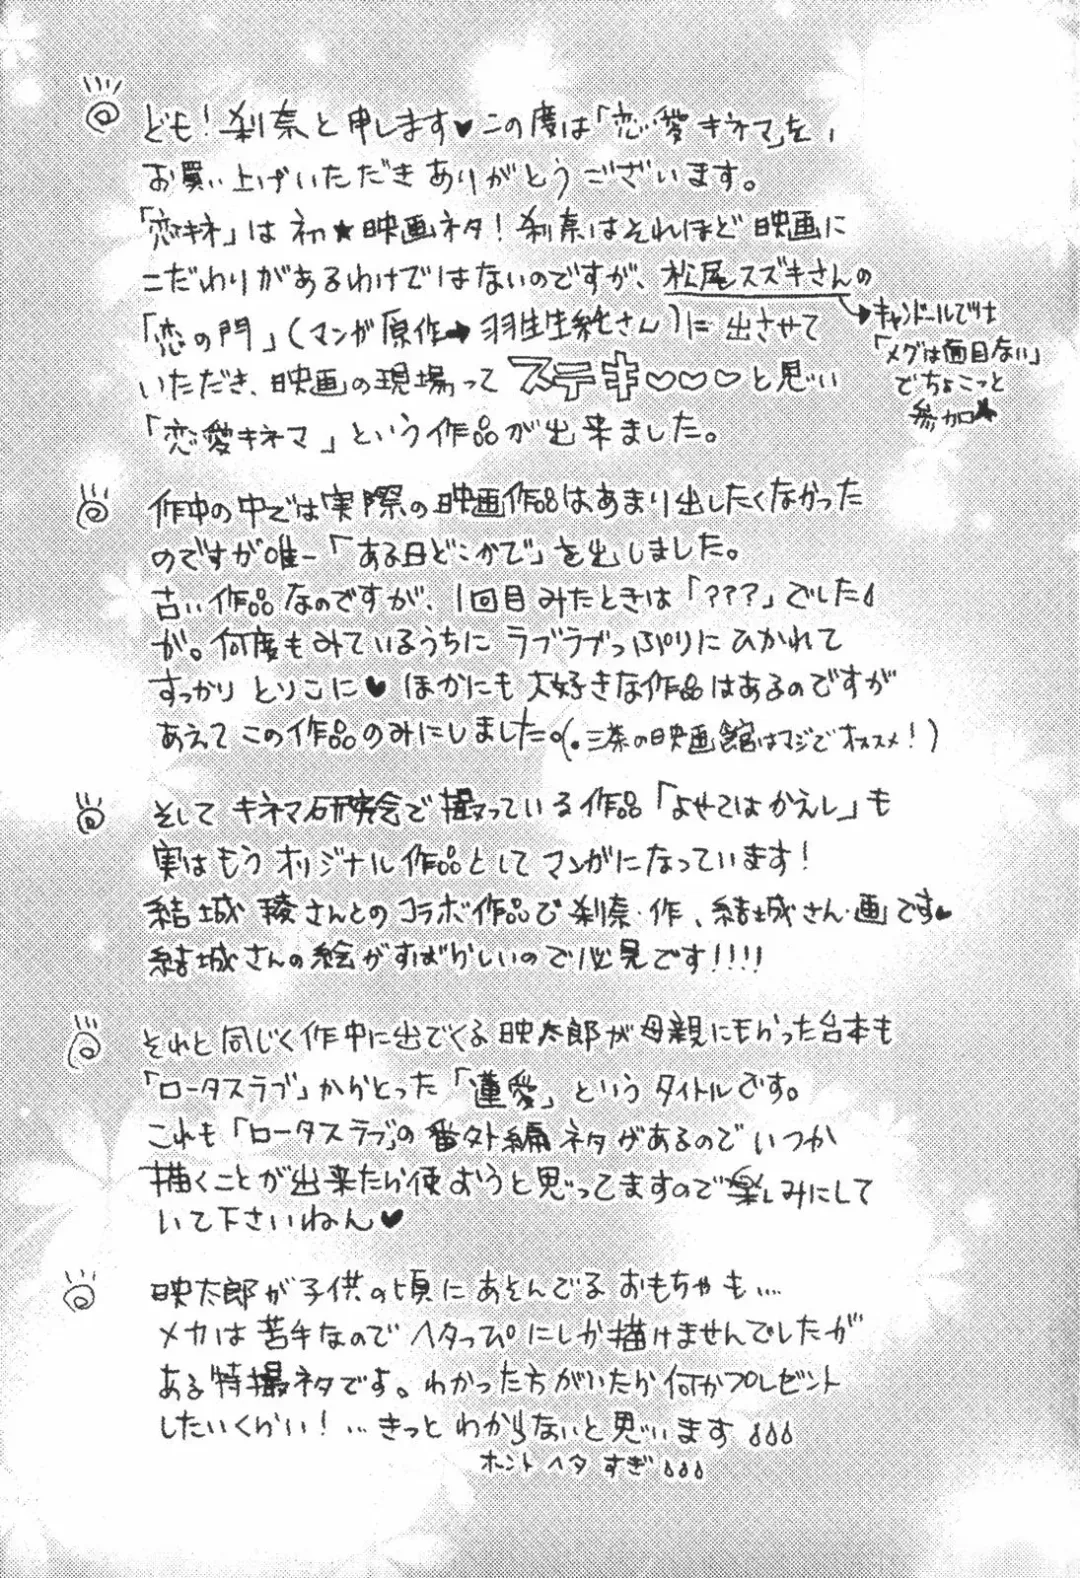 ども!刹奈と申します♥この度は「恋愛キネマ」を、
お買い上げいただきありがとうございます。
「恋キネ」は初★映画ネタ!刹奈はそれほど映画に
こだわりがあるわけではないのですが、松尾スズキさんの
「恋の門」(マンガ原作→羽生生純さん)に出させて
いただき、映画の現場ってステキ♡♡♡と思い
「恋愛キネマ」という作品が出来ました。
→キャンドールでは
「メグは面目ない」
でちょこっと
参加★
作中の中では実際の映画作品はあまり出したくなかった
のですが唯一「ある日どこかで」を出しました。
古い作品なのですが、1回目みたときは「???」でした
が。何度もみているうちにラブラブっぷりにひかれて
すっかりとりこに♥ほかにも大好きな作品はあるのですが
あえてこの作品のみにしました。(・三茶の映画館はマジでオススメ!)
そしてキネマ研究会で撮っている作品「よせてはかえし」も
実はもうオリジナル作品としてマンガになっています!
結城稜さんとのコラボ作品で刹奈・作、結城さん・画です♥
結城さんの絵がすばらしいので必見です!!!!
それと同じく作中に出てくる映太郎が母親にもらった台本も
「ロータスラブ」からとった「蓮愛」というタイトルです。
これも「ロータスラブ」の番外編ネタがあるのでいつか
描くことが出来たら使おうと思ってますので楽しみにして
いて下さいねん♥
映太郎が子供の頃にあそんでるおもちゃも…
メカは苦手なのでヘタっぴにしか描けませんでしたが
ある特撮ネタです。わかった方がいたら何かプレゼント
したいくらい!…きっとわからないと思います
ホントヘタすぎ